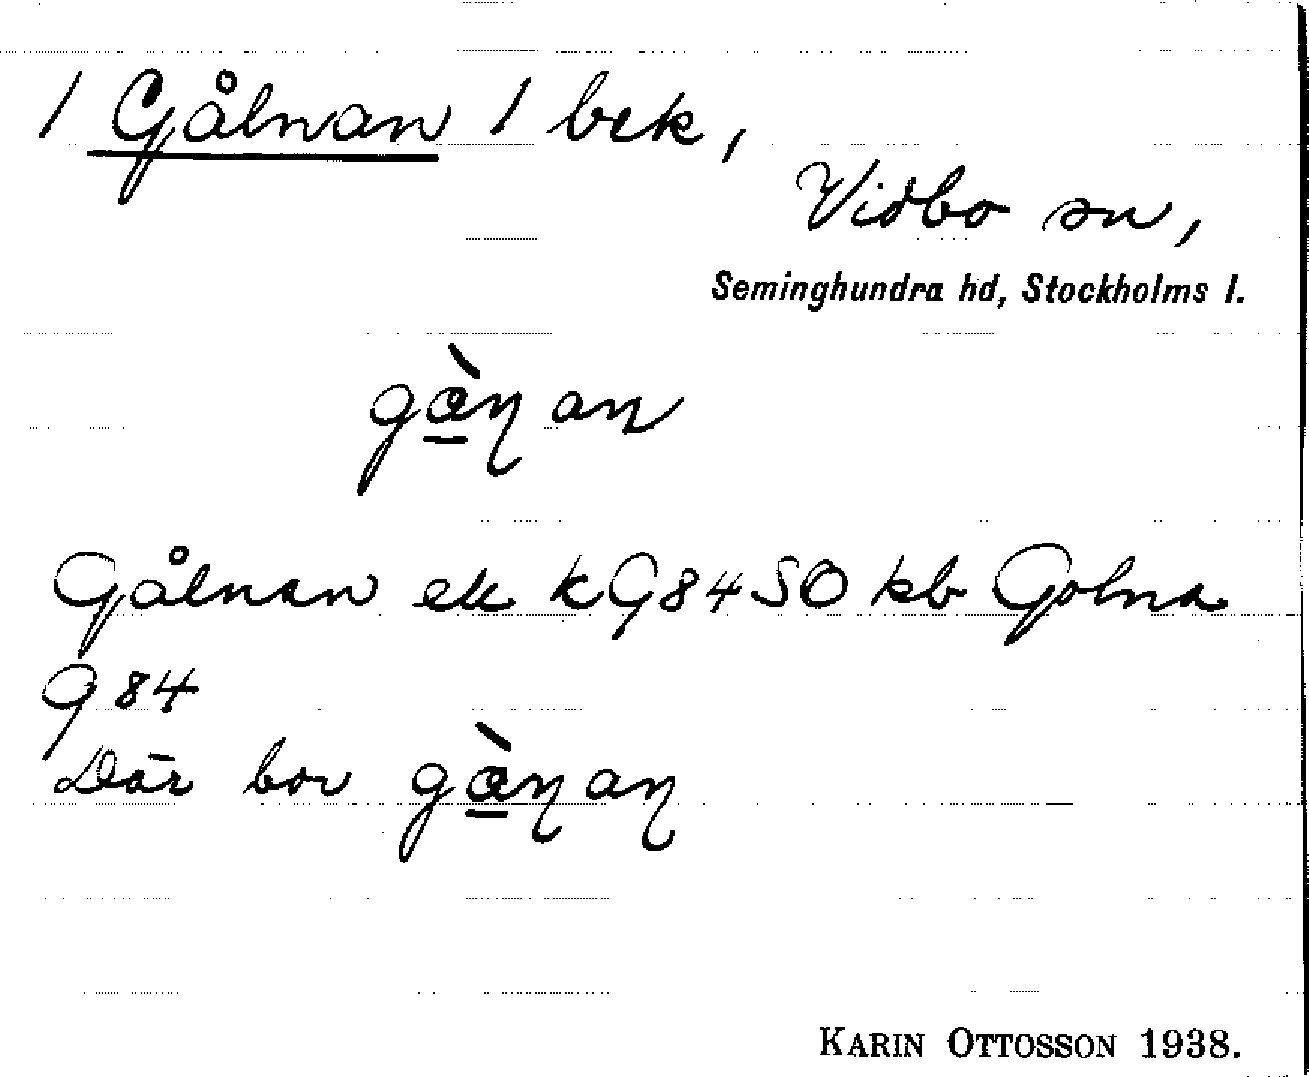 / Gålnan / bek,
Vidbo sn,
Seminghundra hd, Stockholms l.
gàn̨an
Gålnan ek kG84SO kb Golna
G84
Där bor gàn̨an̨
KARIN OTTOSSON 1938.